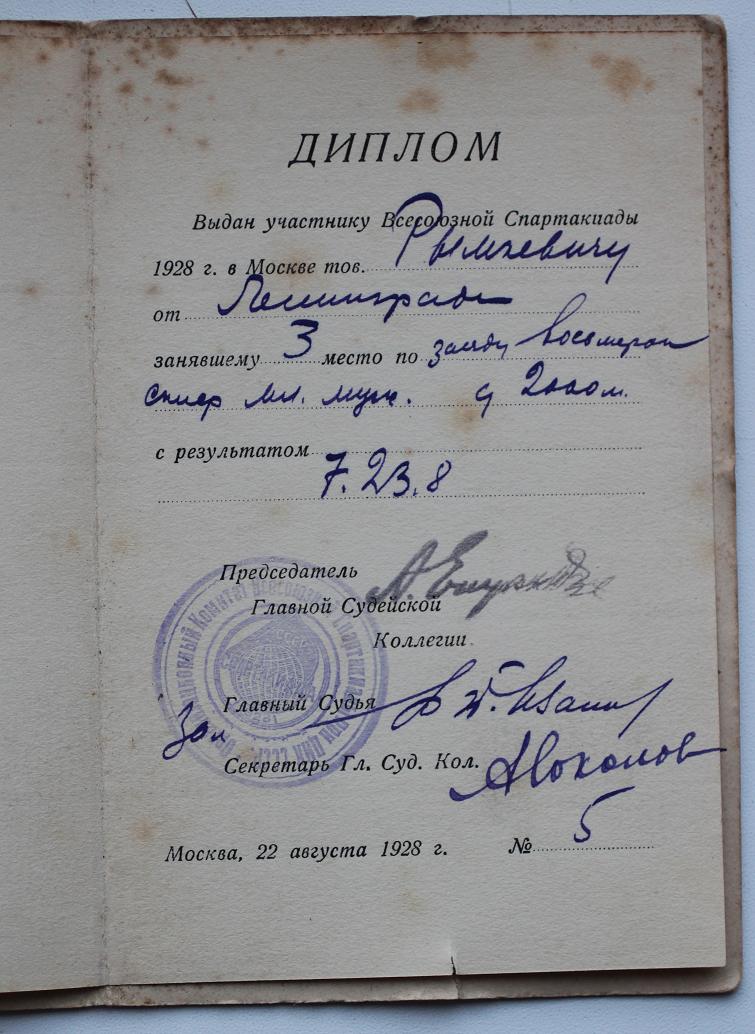 ДИПЛОМ
Выдан участнику Всесоюзной Спартакиады
1928 г. в Москве тов. Рымкевичу
от Ленинграда
занявшему 3 место по заезду восьмерок
мл. муж. 2000 м.
с результатом
7.23.8
Председатель
Главной Судейской
Коллегии
Главный Судья
Зам
Секретарь Гл. Суд. Кол. А Соколов
Москва, 22 августа 1928 г. № 5